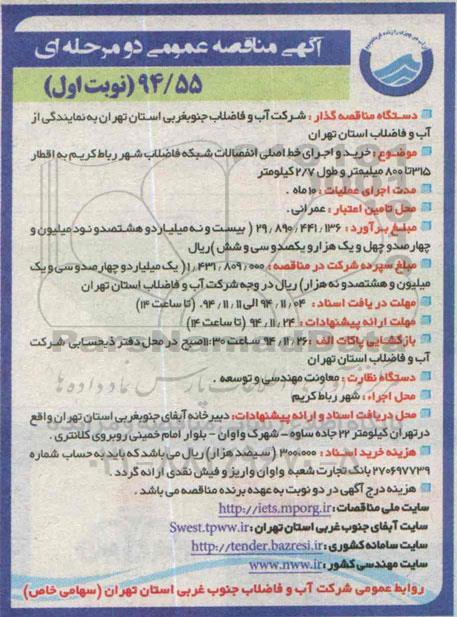 آگهی مناقصه عمومی دو مرحله ای
۹۴/۵۵ (نوبت اول)
دستگاه مناقصه گذار : شرکت آب و فاضلاب جنوبغربی استان تهران به نمایندگی از
آب و فاضلاب استان تهران
موضوع : خرید و اجرای خط اصلی انفصالات شبکه فاضلاب شهر رباط کریم به اقطار
۳۱۵ تا ۸۰۰ میلیمتر و طول ۲/۷ کیلومتر
مدت اجرای عملیات : ۱۰ ماه .
محل تامین اعتبار : عمرانی .
مبلغ برآورد : ۲۹،۸۹۰،۴۴۱،۱۳۶ ( بیست و نه میلیارد و هشتصد و نود میلیون و
چهارصد و چهل و یک هزار و یکصد و سی و شش )ریال
مبلغ سپرده شرکت در مناقصه : ۱،۴۳۱،۸۰۹،۰۰۰( یک میلیارد و چهارصد و سی و یک
میلیون و هشتصد و نه هزار) ریال در وجه شرکت آب و فاضلاب استان تهران
مهلت دریافت اسناد : ۹۴،۱۱،۰۴ الی ۹۴،۱۱،۱۱. (تا ساعت ۱۴)
مهلت ارائه پیشنهادات : ۹۴،۱۱،۲۴ (تا ساعت ۱۴)
بازگشایی پاکات الف : ۹۴،۱۱،۲۶ ساعت ۱۱:۳۰ صبح در محل دفتر ذیحسابی شرکت
آب و فاضلاب استان تهران
دستگاه نظارت : معاونت مهندسی و توسعه .
محل اجراء : شهر رباط کریم
محل دریافت اسناد و ارائه پیشنهادات: دبیرخانه آبفای جنوبغربی استان تهران واقع
در تهران کیلومتر ۲۲ جاده ساوه – شهرک واوان – بلوار امام خمینی روبروی کلانتری .
هزینه خرید اسناد : ۳۰۰،۰۰۰ ( سیصد هزار) ریال می باشد که باید به حساب شماره
۲۷۰۶۹۷۷۳۹ بانک تجارت شعبه واوان واریز و فیش نقدی ارائه گردد .
هزینه درج آگهی در دو نوبت به عهده برنده مناقصه می باشد .
سایت ملی مناقصات : http://iets.mporg.ir
سایت آبفای جنوب غربی استان تهران : Swest.tpww.ir
سایت سامانه کشوری : http://tender.bazresi.ir
سایت مهندسی کشور : www.nww.ir
روابط عمومی شرکت آب و فاضلاب جنوب غربی استان تهران (سهامی خاص)